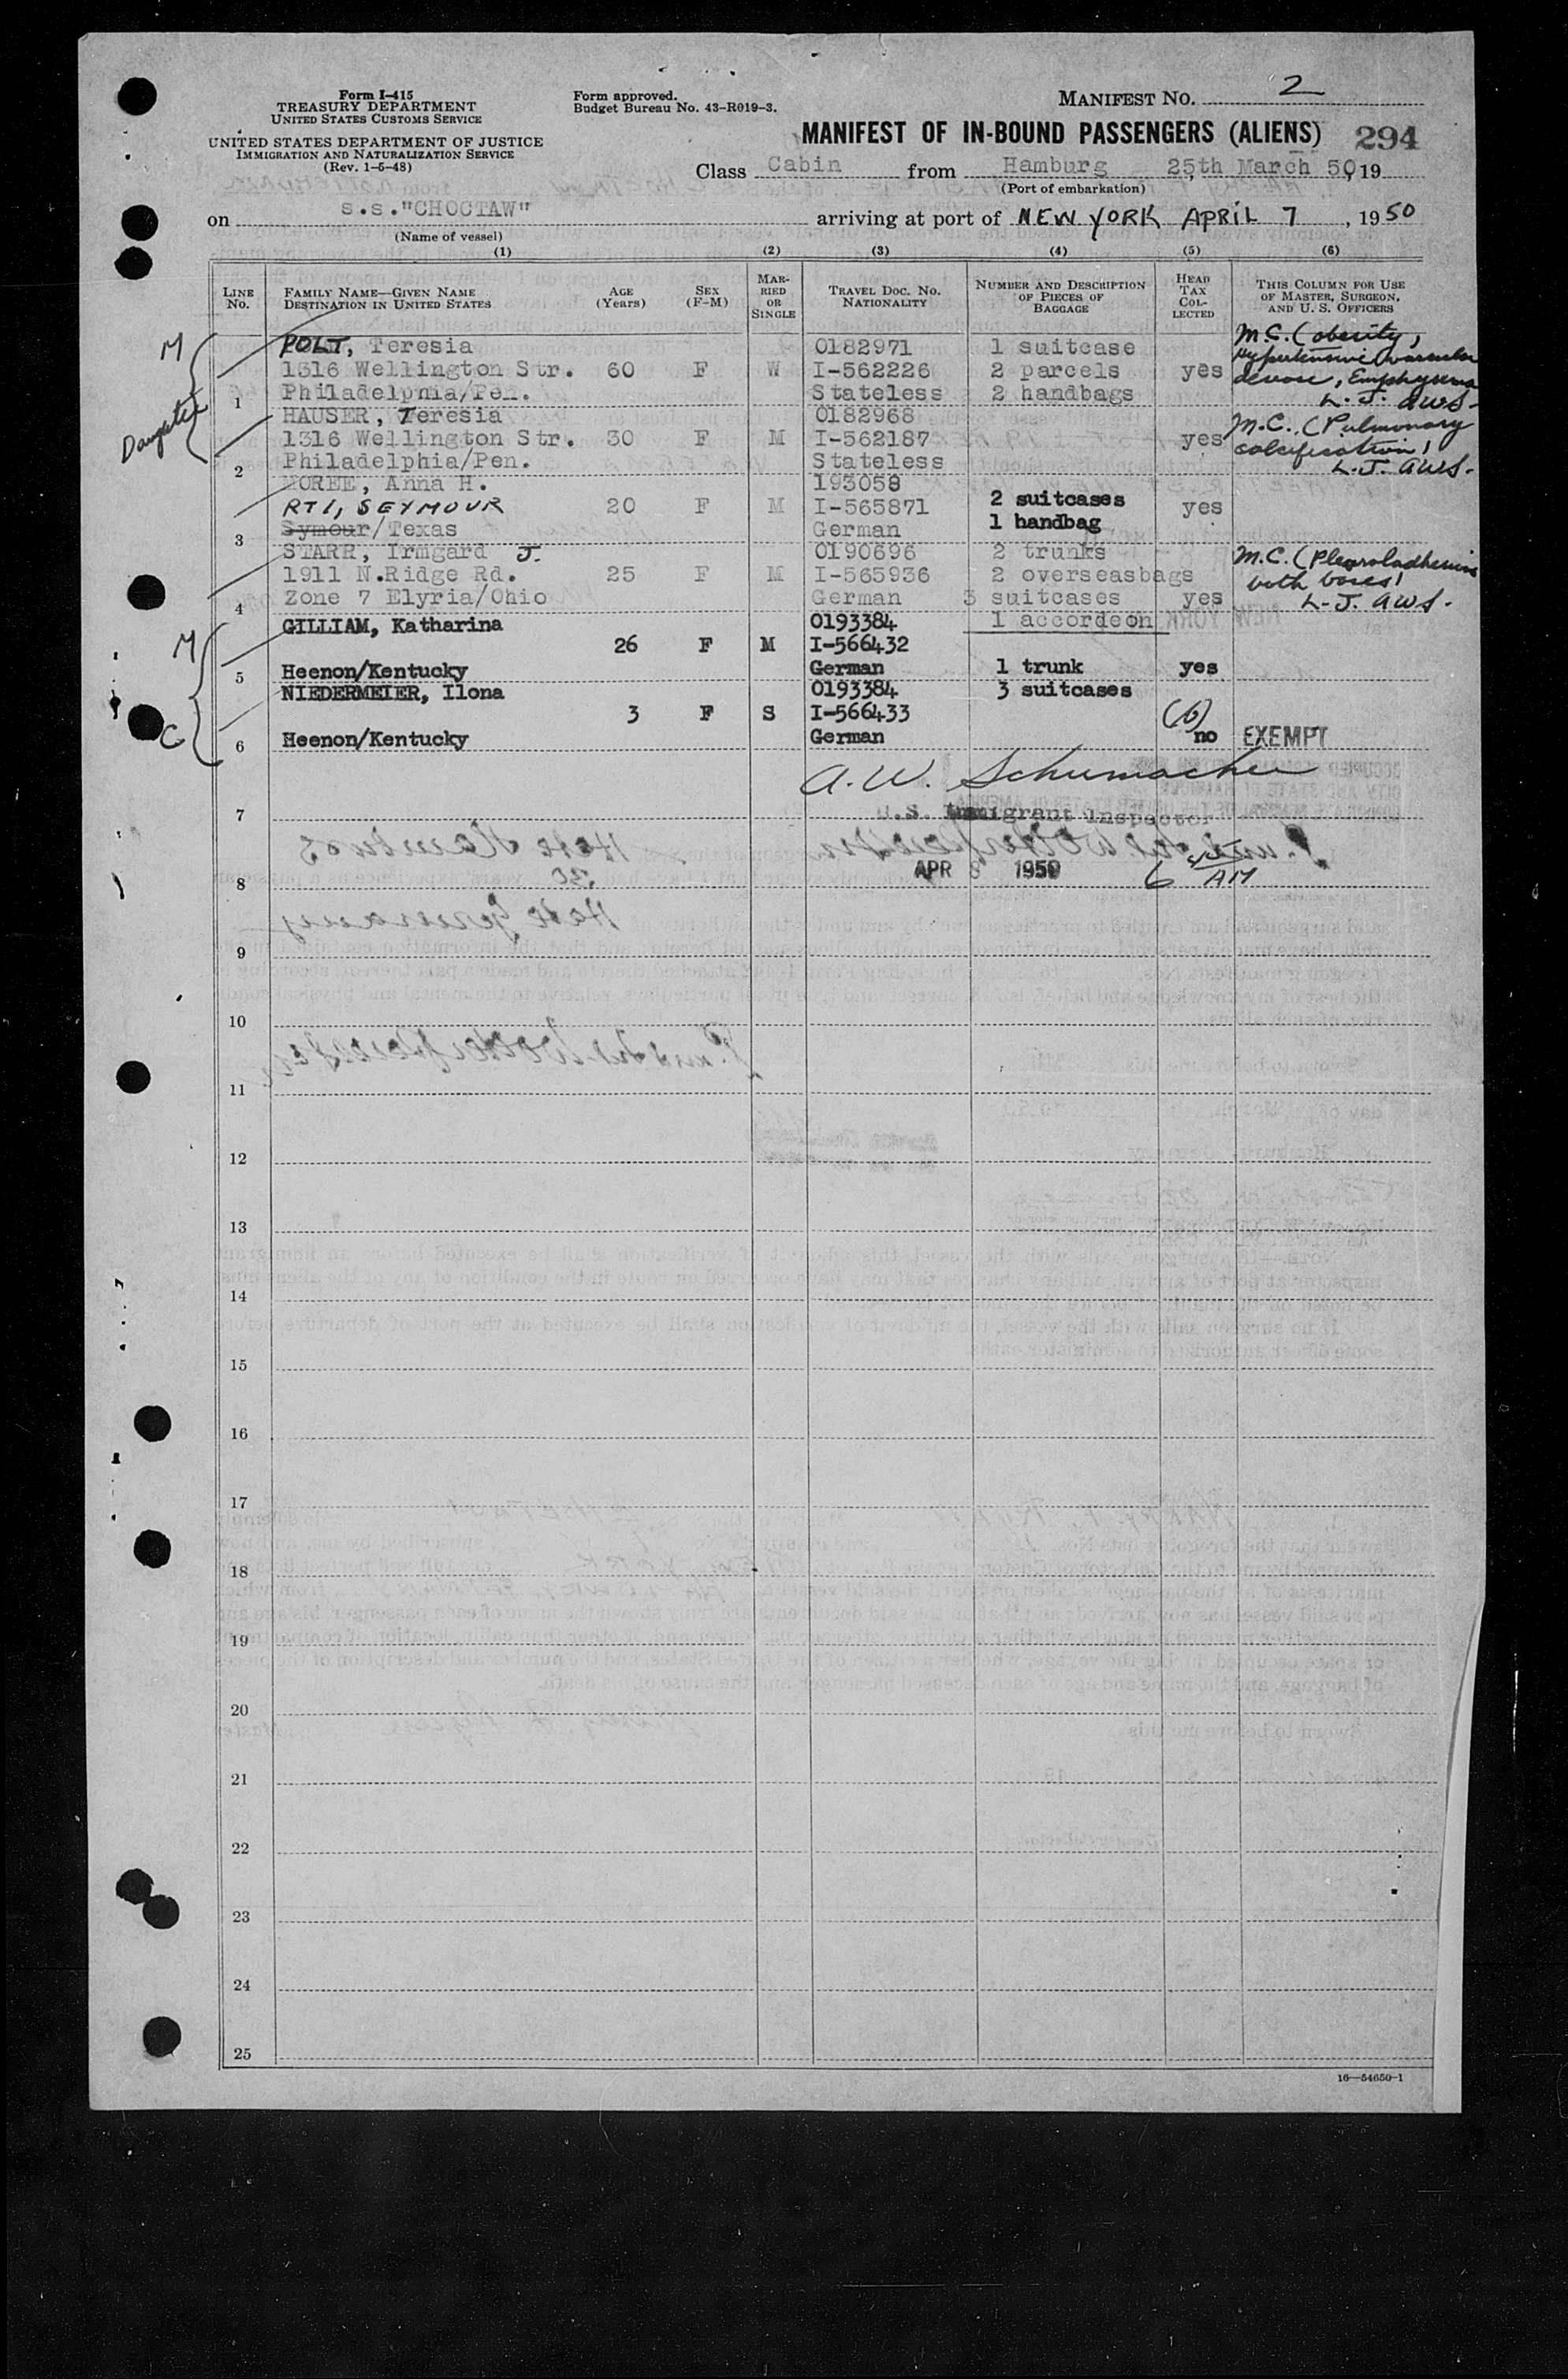 Form I-415
TREASURY DEPARTMENT
UNITED STATES CUSTOMS SERVICE
UNITED STATES DEPARTMENT OF JUSTICE
IMMIGRATION AND NATURALIZATION SERVICE
(Rev. 1-5-48)
Form approved.
Budget Bureau No. 43-R019-3.
MANIFEST NO. 2
MANIFEST OF IN-BOUND PASSENGERS (ALIENS) 294
Class Cabin from Hamburg 25th March 50, 19
(Port of embarkation)
on s.s."CHOCTAW" arriving at port of NEW YORK APRIL 7, 1950
(Name of vessel)
(1) (2) (3) (4) (5) (6)
LINE No. FAMILY NAME—GIVEN NAME DESTINATION IN UNITED STATES AGE (Years) SEX (F-M) MARRIED OR SINGLE TRAVEL DOC. NO. NATIONALITY NUMBER AND DESCRIPTION OF PIECES OF BAGGAGE HEAD TAX COLLECTED THIS COLUMN FOR USE OF MASTER, SURGEON, AND U. S. OFFICERS
M POLT, Teresia 0182971 1 suitcase M.C. (obesity,
1316 Wellington Str. 60 F W I-562226 2 parcels yes Hypertensive vascular
1 Philadelpnia/Pen. Stateless 2 handbags disease, Emphysema
L.J. AWS.
Daughter HAUSER, Teresia 0182968 M.C. (Pulmonary
1316 Wellington Str. 30 F M I-562187 yes calcification)
2 Philadelphia/Pen. Stateless L.J. AWS.
MOREE, Anna H. 193058
RT1, SEYMOUR 20 F M I-565871 2 suitcases yes
3 Symour/Texas German 1 handbag
STARR, Irmgard J. 0190696 2 trunks M.C. (
1911 N.Ridge Rd. 25 F M I-565936 2 overseasbags both bases)
4 Zone 7 Elyria/Ohio German 3 suitcases yes L.J. AWS.
M GILLIAM, Katharina 0193384 1 accordeon
26 F M I-566432
5 Heenon/Kentucky German 1 trunk yes
NIEDERMEIER, Ilona 0193384 3 suitcases
C 3 F S I-566433 (6)
6 Heenon/Kentucky German no EXEMPT
A.W. Schumacher
7 U.S. Immigrant Inspector
8 APR 8 1950 6 AM
9
10
11
12
13
14
15
16
17
18
19
20
21
22
23
24
25
16—54650-1